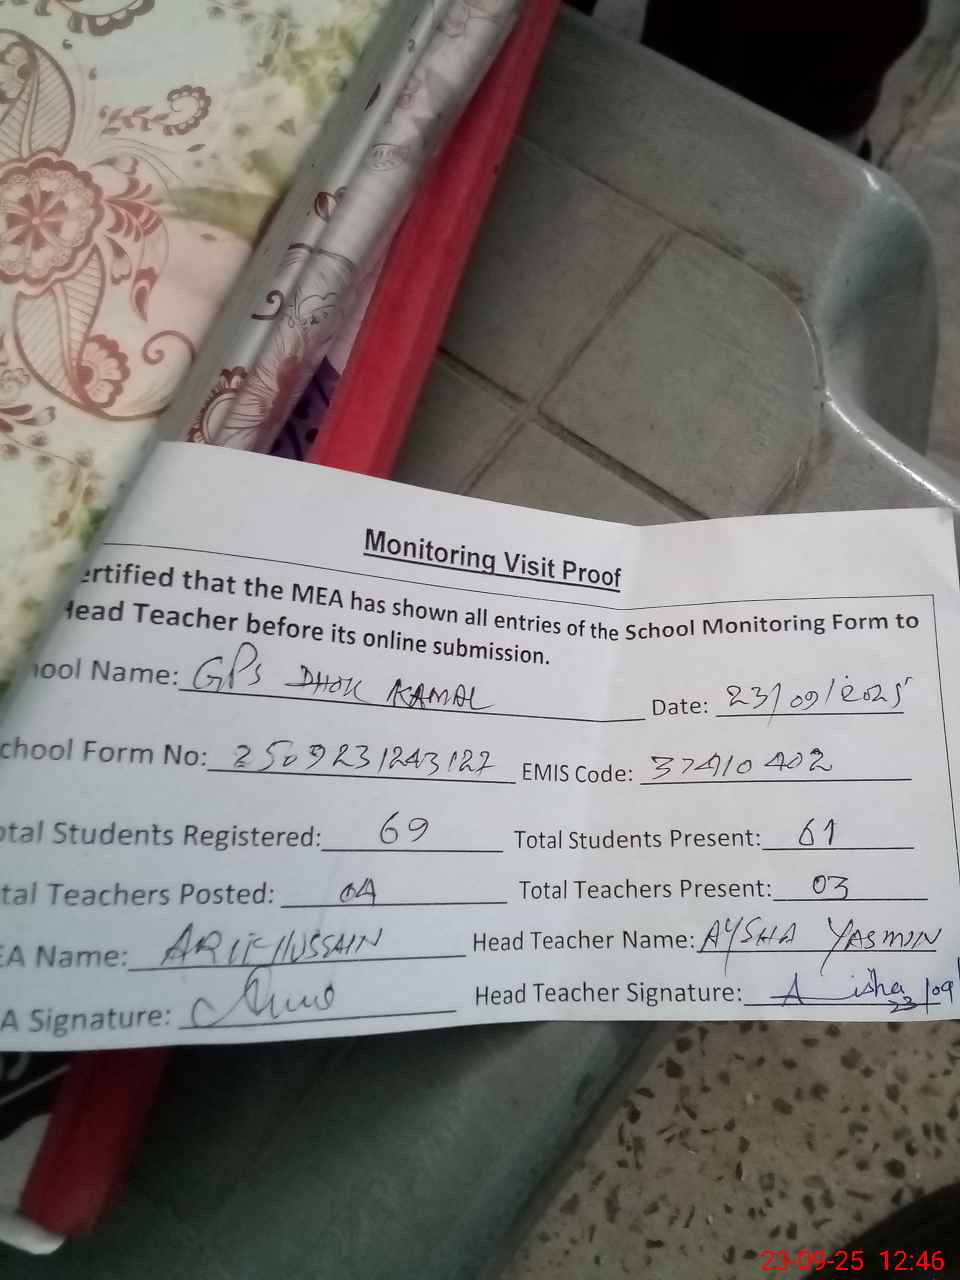 Monitoring Visit Proof
ertified that the MEA has shown all entries of the School Monitoring Form to
Head Teacher before its online submission.
hool Name: GPS DHOK KAMAL Date: 23/09/2025
chool Form No: 2509231243127 EMIS Code: 37410402
otal Students Registered: 69 Total Students Present: 61
tal Teachers Posted: 04 Total Teachers Present: 03
EA Name: ARIF HUSSAIN Head Teacher Name: AYSHA YASMIN
A Signature: Head Teacher Signature: Aisha
23/09
23-09-25 12:46